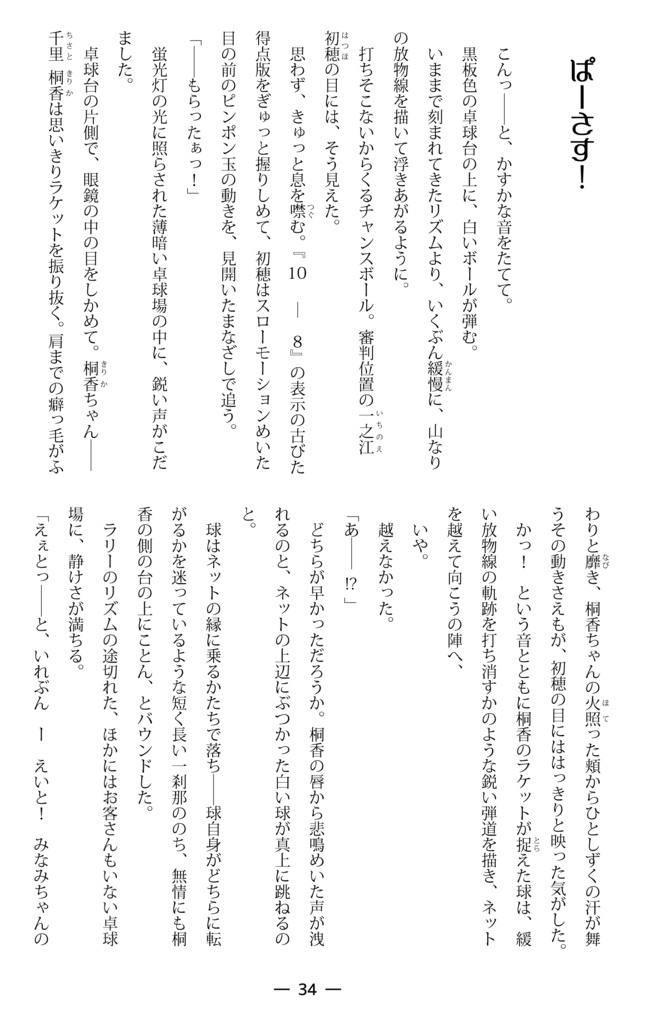 ぱーさす！
こんっ――と、かすかな音をたてて。
黒板色の卓球台の上に、白いボールが弾む。
いままで刻まれてきたリズムより、いくぶん緩慢に、山なり
の放物線を描いて浮きあがるように。
打ちそこないからくるチャンスボール。審判位置の一之江
初穂の目には、そう見えた。
思わず、きゅっと息を噤む。『10 ― 8』の表示の古びた
得点版をぎゅっと握りしめて、初穂はスローモーションめいた
目の前のピンポン玉の動きを、見開いたまなざしで追う。
「――もらったぁっ！」
蛍光灯の光に照らされた薄暗い卓球場の中に、鋭い声がこだ
ました。
卓球台の片側で、眼鏡の中の目をしかめて。桐香ちゃん――
千里 桐香は思いきりラケットを振り抜く。肩までの癖っ毛がふ
わりと靡き、桐香ちゃんの火照った頬からひとしずくの汗が舞
うその動きさえもが、初穂の目にははっきりと映った気がした。
かっ！　という音とともに桐香のラケットが捉えた球は、緩
い放物線の軌跡を打ち消すかのような鋭い弾道を描き、ネット
を越えて向こうの陣へ、
いや。
越えなかった。
「あ――⁉」
どちらが早かっただろうか。桐香の唇から悲鳴めいた声が洩
れるのと、ネットの上辺にぶつかった白い球が真上に跳ねるの
と。
球はネットの縁に乗るかたちで落ち――球自身がどちらに転
がるかを迷っているような短く長い一刹那ののち、無情にも桐
香の側の台の上にことん、とバウンドした。
ラリーのリズムの途切れた、ほかにはお客さんもいない卓球
場に、静けさが満ちる。
「えぇとっ――と、いれぶん　ー　えいと！　みなみちゃんの
― 34 ―